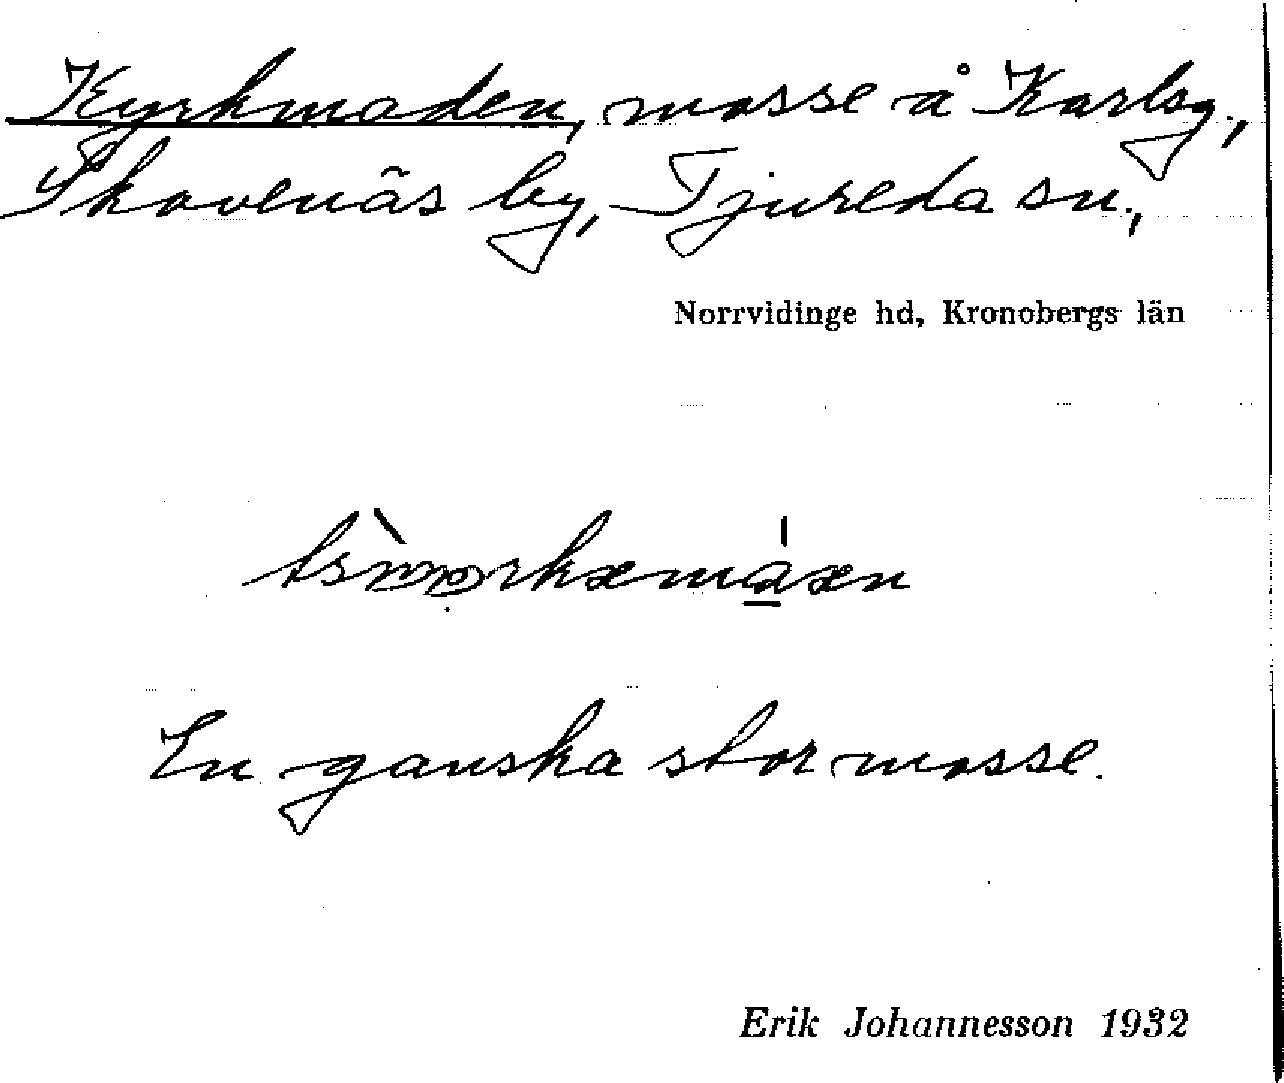 Kyrkmaden, mosse å Karlsg.,
Skavenäs by, Tjureda sn.,
Norrvidinge hd, Kronobergs län
En ganska stor mosse.
Erik Johannesson 1932